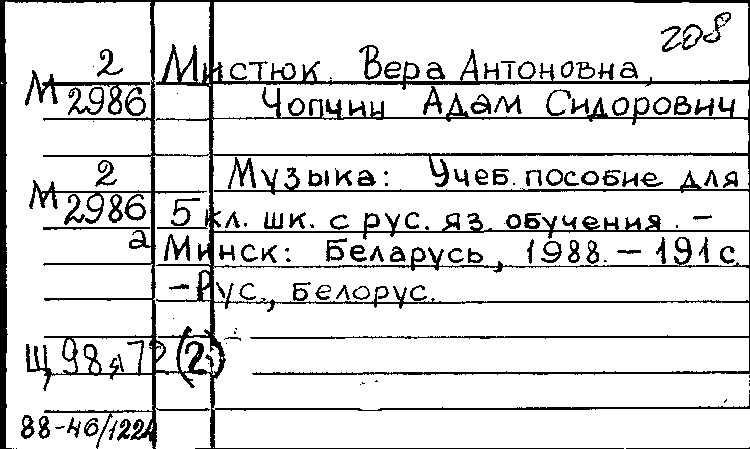 208
2 Мистюк, Вера Антоновна,
М 2986 Чопчиц Адам Сидорович
2 Музыка: Учеб. пособие для
М 2986 5 кл. шк. с рус. яз. обучения. –
а Минск: Беларусь, 1988. – 191 с.
– Рус., белорус.
Щ,98я72 (2)
88-46/1224